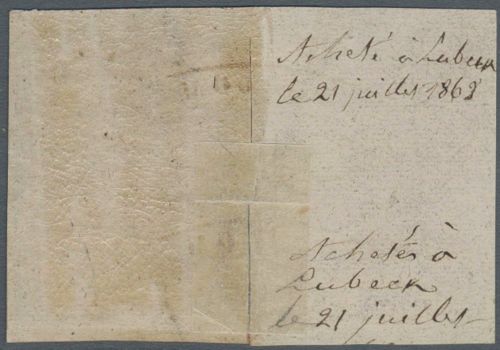 Acheté à Lubeck
le 21 juillet 1862
Achetés à
Lubeck
le 21 juillet